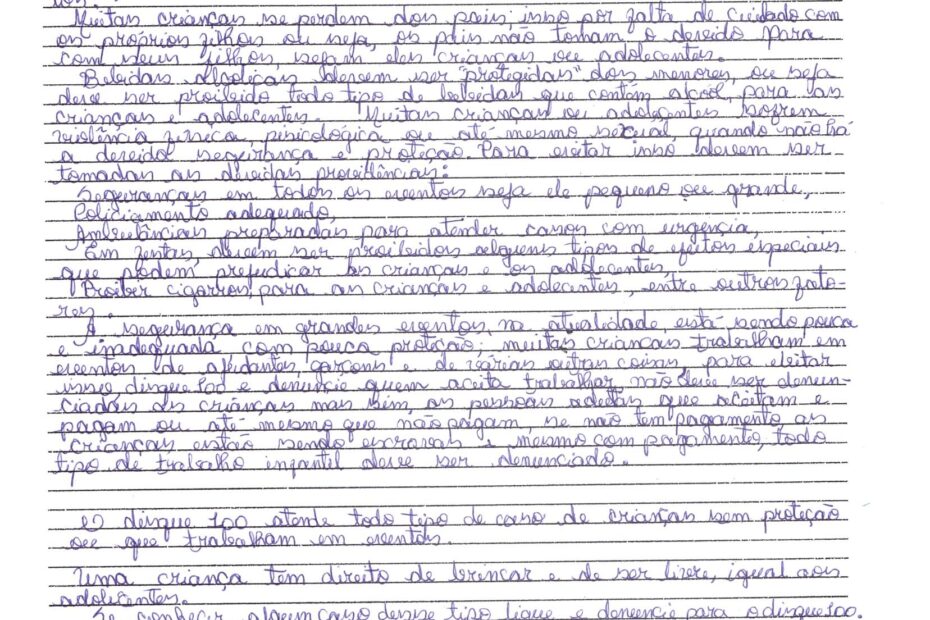 Muitas crianças se perdem dos pais, isso por falta de cuidado com
os próprios filhos ou seja, os pais não tomam o devido para
com seus filhos, sejam eles crianças ou adolecentes.
Bebidas Alcolicas devem ser "protegidas" dos menores, ou seja
deve ser proibido todo tipo de bebidas que contém alcool, para as
crianças e adolecentes. Muitas crianças ou adolecentes sofrem
violência física, pisicológica ou até mesmo sexual, quando não há
a devida segurança e proteção. Para evitar isso devem ser
tomadas as devidas providências:
Seguranças em todos os eventos seja ele pequeno ou grande,
Policiamento adequado,
Ambulâncias preparadas para atender casos com urgençia,
Em festas, devem ser proibidos alguns tipos de efeitos especiais
que podem prejudicar as crianças e os adolecentes,
Proiber cigarros, para as crianças e adolecentes, entre outros fato-
res.
A segurança em grandes eventos, na atualidade, está sendo pouca
e inadequada com pouca proteção; muitas crianças trabalham em
eventos de ajudantes, garçons e de várias outras coisas, para evitar
isso, disque 100 e denuncie quem aceita trabalhar, não deve ser denun-
ciadas as crianças mas sim, as pessoas adultas que aceitam e
pagam ou até mesmo que não pagam, se não tem pagamento as
crianças estão sendo escravas e mesmo com pagamento, todo
tipo de trabalho infantil deve ser denunciado.
O disque 100 atende todo tipo de caso de crianças sem proteção
ou que trabalham em eventos.
Uma criança tem direito de brincar e de ser livre, igual aos
adolecentes.
Se conhecer algum caso desse tipo ligue e denuncie para o disque 100.